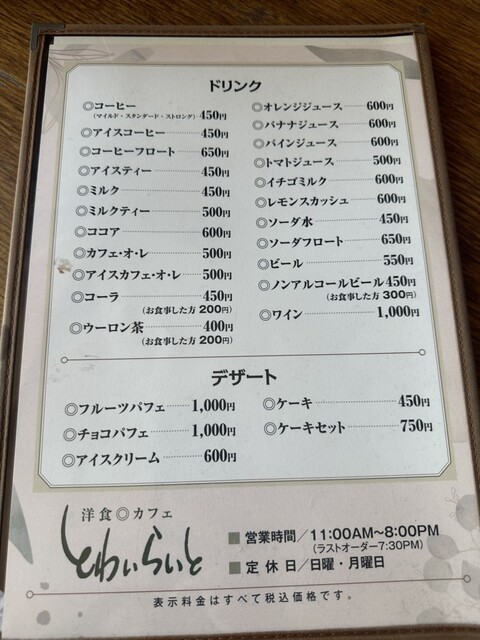 ドリンク
◎コーヒー
（マイルド・スタンダード・ストロング） 450円
◎アイスコーヒー 450円
◎コーヒーフロート 650円
◎アイスティー 450円
◎ミルク 450円
◎ミルクティー 500円
◎ココア 600円
◎カフェ・オ・レ 500円
◎アイスカフェ・オ・レ 500円
◎コーラ 450円
（お食事した方 200円）
◎ウーロン茶 400円
（お食事した方 200円）
◎オレンジジュース 600円
◎バナナジュース 600円
◎パインジュース 600円
◎トマトジュース 500円
◎イチゴミルク 600円
◎レモンスカッシュ 600円
◎ソーダ水 450円
◎ソーダフロート 650円
◎ビール 550円
◎ノンアルコールビール 450円
（お食事した方 300円）
◎ワイン 1,000円
デザート
◎フルーツパフェ 1,000円
◎チョコパフェ 1,000円
◎アイスクリーム 600円
◎ケーキ 450円
◎ケーキセット 750円
洋食◎カフェ
とわいらいと
■営業時間／11:00AM〜8:00PM
（ラストオーダー7:30PM）
■定休日／日曜・月曜日
表示料金はすべて税込価格です。